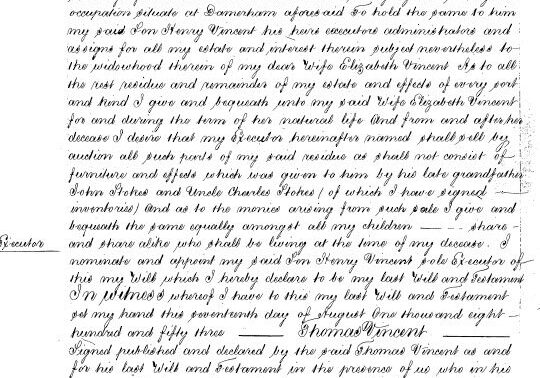 occupation situate at Damerham aforesaid To hold the same to him
my said Son Henry Vincent his heirs executors administrators and
assigns for all my estate and interest therein subject nevertheless to
the widowhood therein of my dear Wife Elizabeth Vincent As to all
the rest residue and remainder of my estate and effects of every sort
and kind I give and bequeath unto my said Wife Elizabeth Vincent
for and during the term of her natural life And from and after her
decease I desire that my Executor hereinafter named shall sell by
auction all such parts of my said residue as shall not consist of
furniture and effects which was given to him by his late grandfather
John Stokes and Uncle Charles Stokes (of which I have signed
inventories) And as to the monies arising from such sale I give and
bequeath the same equally amongst all my children — — share
Executor
and share alike who shall be living at the time of my decease. I
nominate and appoint my said Son Henry Vincent sole Executor of
this my Will which I hereby declare to be my last Will and Testament
In witness whereof I have to this my last Will and Testament
set my hand this seventeenth day of August One thousand eight
hundred and fifty three — Thomas Vincent —
Signed published and declared by the said Thomas Vincent as and
for his last Will and Testament in the presence of us who in his